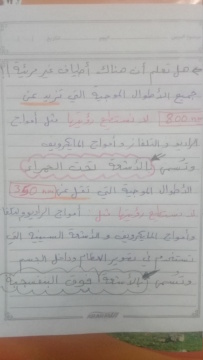 هل تعلم أن هناك أطياف غير مرئية
جميع الأطوال الموجية التي تزيد عن
800 لا نستطيع رؤيتها مثل أمواج
الراديو والتلفاز وأمواج المايكرويف
وتسمى بالأشعة تحت الحمراء
الأطوال الموجية التي تقل عن 360
لا نستطيع رؤيتها مثل أمواج الراديو
وأمواج المايكرويف والأشعة السينية التي
تستخدم في تصوير العظام وداخل الجسم
وتسمى بالأشعة فوق البنفسجية